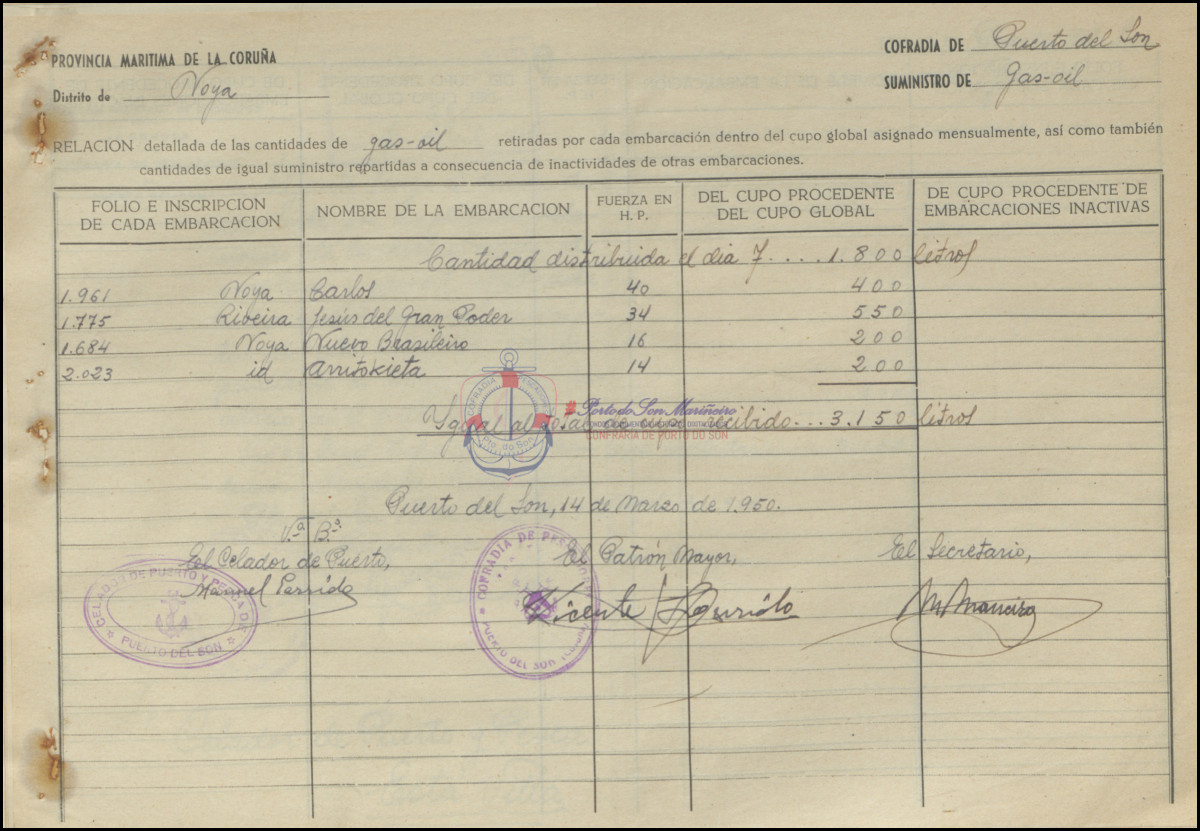 PROVINCIA MARITIMA DE LA CORUÑA
Distrito de Noya
COFRADIA DE Puerto del Son
SUMINISTRO DE Gas-oil
RELACION detallada de las cantidades de gas-oil retiradas por cada embarcación dentro del cupo global asignado mensualmente, así como también
cantidades de igual suministro repartidas a consecuencia de inactividades de otras embarcaciones.
FOLIO E INSCRIPCION DE CADA EMBARCACION NOMBRE DE LA EMBARCACION FUERZA EN H. P. DEL CUPO PROCEDENTE DEL CUPO GLOBAL DE CUPO PROCEDENTE DE EMBARCACIONES INACTIVAS
Cantidad distribuida el dia 7.....1.800 litros
1.961 Noya Carlos 40 400
1.775 Ribeira Jesús del Gran Poder 34 550
1.684 Noya Nuevo Brasileiro 16 200
2.023 id Arrizokieta 14 200
Ygual al total de cupo recibido...3.150 litros
COFRADIA PESCADORES
Pto. do Son
#Porto do Son Mariñeiro
CONFRARIA DE PORTO DO SON
Puerto del Son, 14 de Marzo de 1.950.
Vº Bº
El Celador de Puerto, El Patrón Mayor, El Secretario,
Manuel
Vicente
CELADOR DE PUERTO Y PESCA DE
PUERTO DEL SON
COFRADIA DE
PUERTO DEL SON